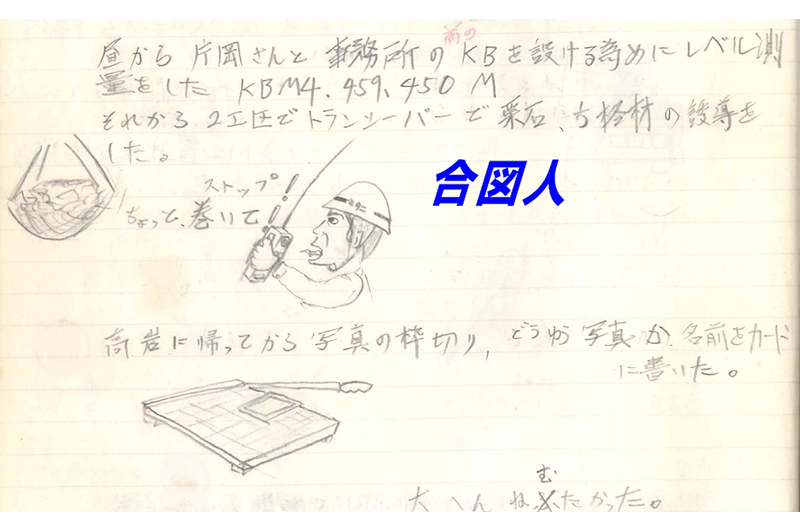 昼から 片岡さんと 事務所の前の KBを設ける為めにレベル測
量をした KBM4、459、450 M
それから 2工区でトランシーバーで 栗石、 材の誘導を
した。
合図人
ストップ!
ちょっと、巻いて!
高岩に帰ってから 写真の枠切り, どうゆう 写真か 名前をカード
に書いた。
大へん ねむたかった。